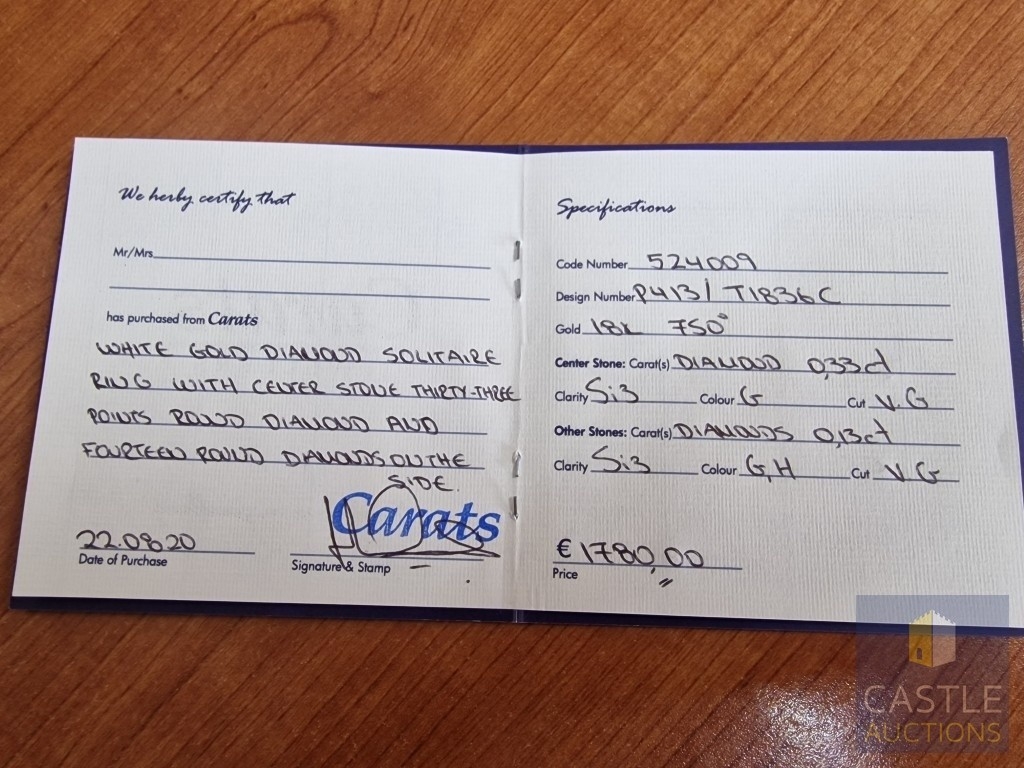 We herby certify that
Mr/Mrs.
has purchased from Carats
WHITE GOLD DIAMOND SOLITAIRE
RING WITH CENTER STONE THIRTY-THREE
POINTS ROUND DIAMOND AND
FOURTEEN ROUND DIAMONDS ON THE
SIDE.
Carats
22.08.20
Date of Purchase
Signature & Stamp
Specifications
Code Number 524009
Design Number P413/ T1836C
Gold 18K 750°
Center Stone: Carat(s) DIAMOND 0,33ct
Clarity Si3 Colour G Cut V.G
Other Stones: Carat(s) DIAMONDS 0,13ct
Clarity Si3 Colour G,H Cut V.G
€ 1780,00
Price
CASTLE
AUCTIONS